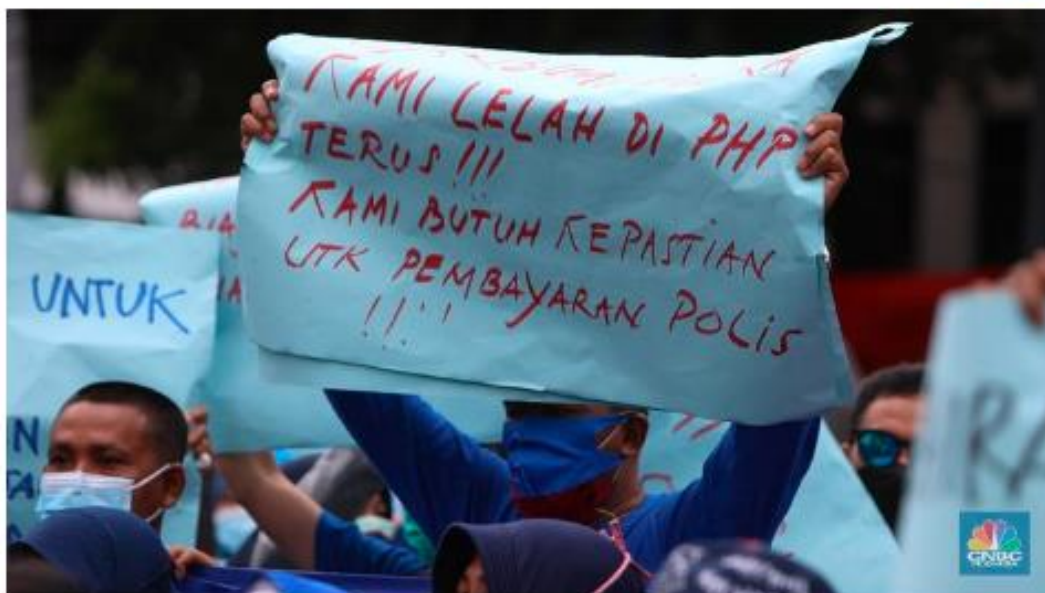 KAMI LELAH DI PHP
TERUS!!!
KAMI BUTUH KEPASTIAN
UTK PEMBAYARAN POLIS
!!!!
UNTUK
CNBC
INDONESIA